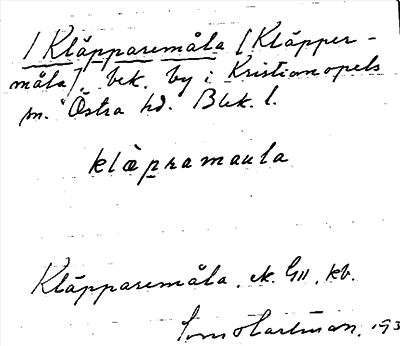 1 Kläpparemåla [Kläpper-
måla], bek. by i Kristianopels
sn. Östra hd. Blek. l.
klàpramaula
Kläpparemåla. ek. GII, kb.